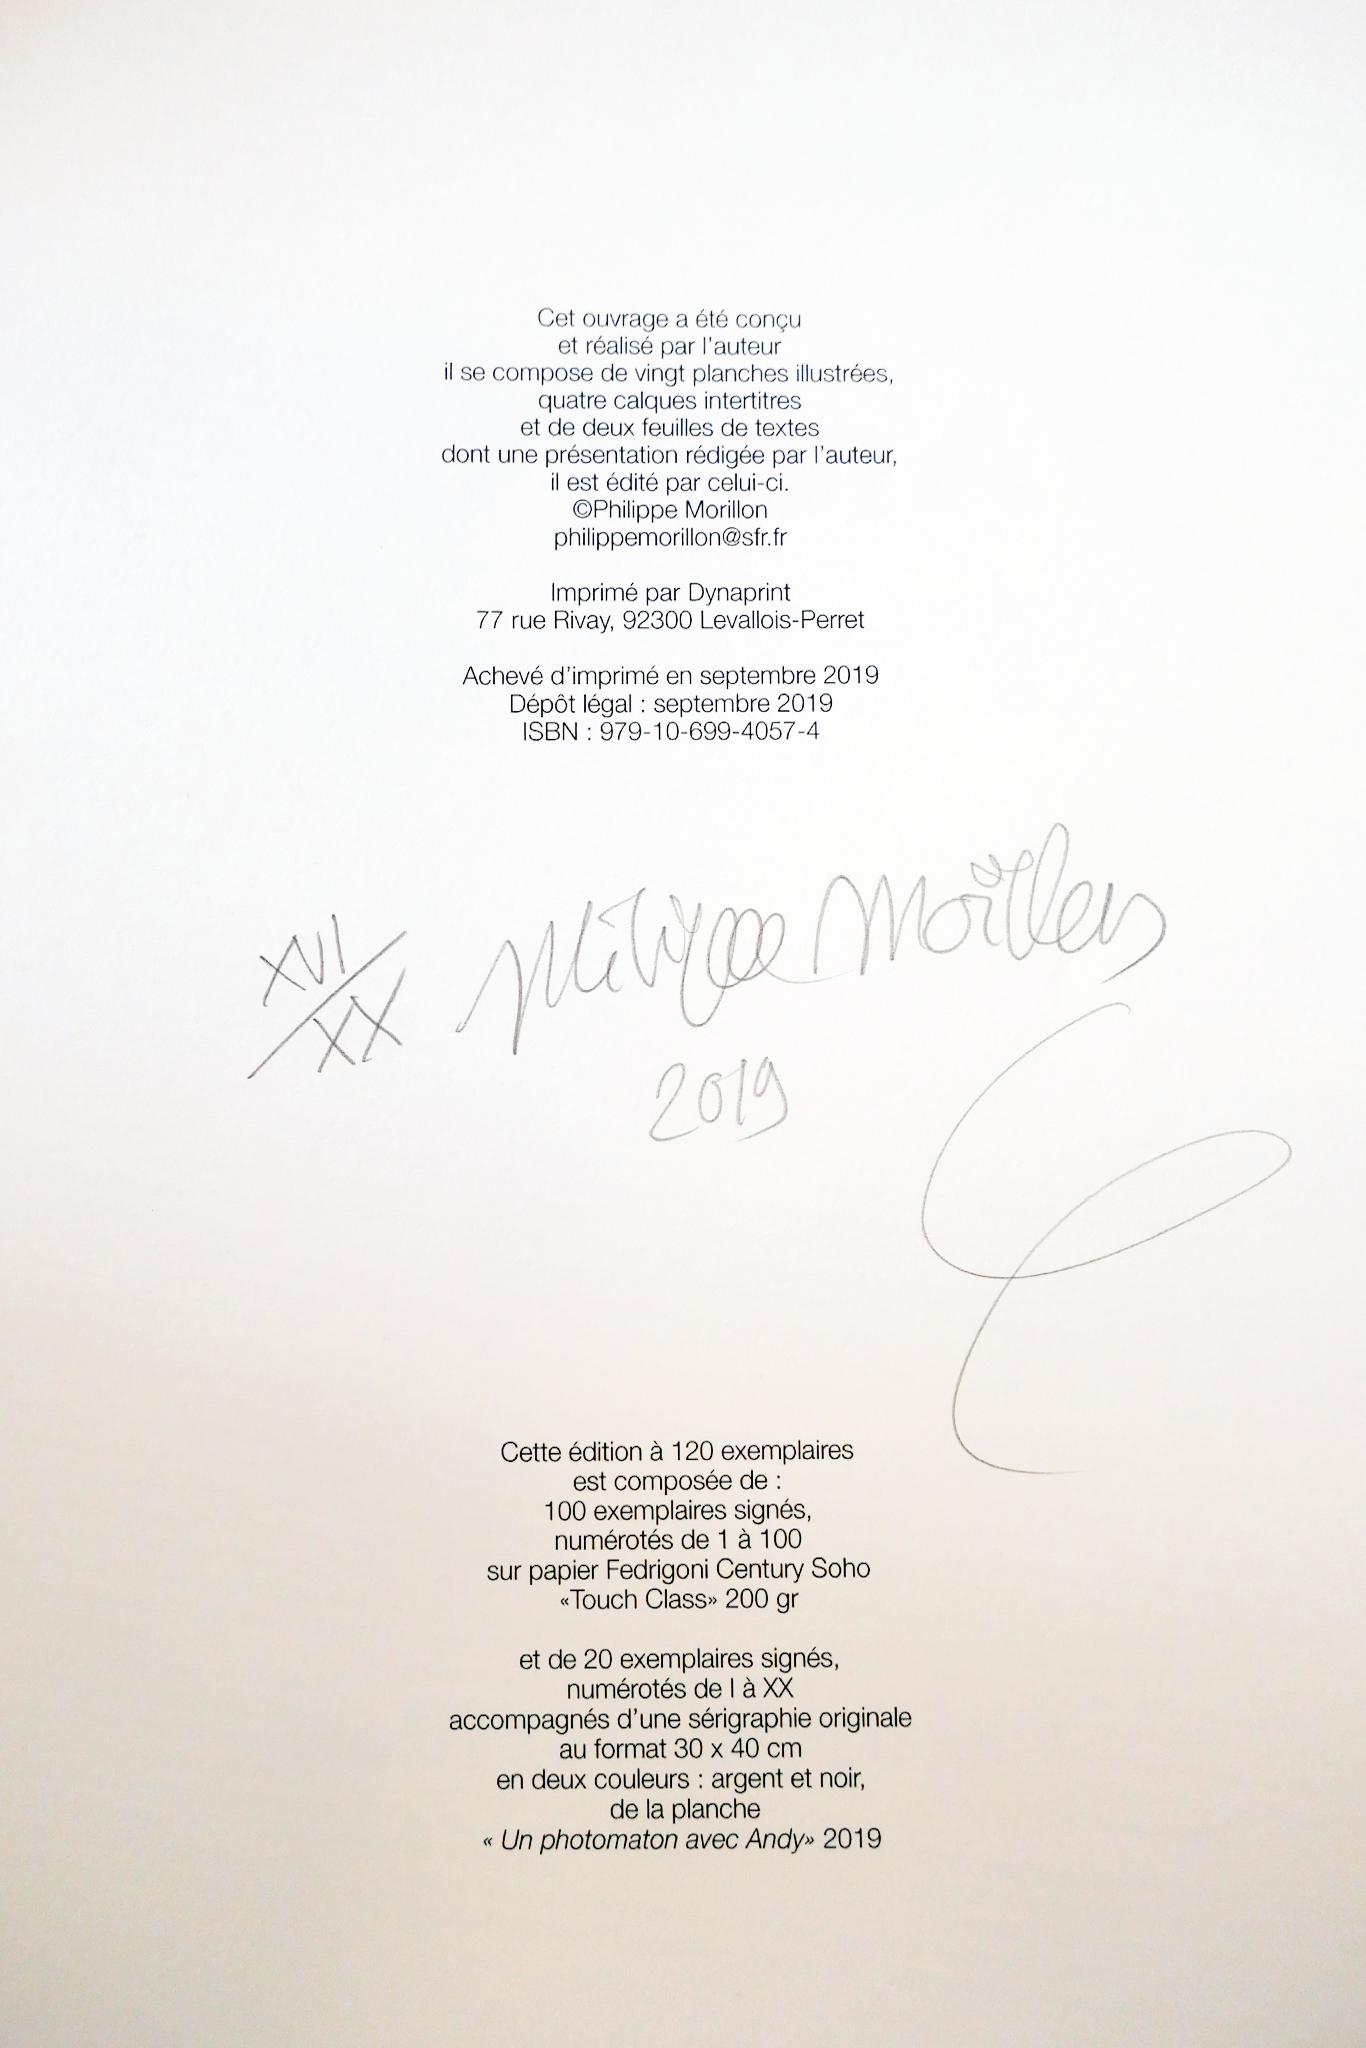 Cet ouvrage a été conçu
et réalisé par l'auteur
il se compose de vingt planches illustrées,
quatre calques intertitres
et de deux feuilles de textes
dont une présentation rédigée par l'auteur,
il est édité par celui-ci.
©Philippe Morillon
philippemorillon@sfr.fr
Imprimé par Dynaprint
77 rue Rivay, 92300 Levallois-Perret
Achevé d'imprimé en septembre 2019
Dépôt légal : septembre 2019
ISBN : 979-10-699-4057-4
XVI/XX Philippe Morillon
2019
Cette édition à 120 exemplaires
est composée de :
100 exemplaires signés,
numérotés de 1 à 100
sur papier Fedrigoni Century Soho
«Touch Class» 200 gr
et de 20 exemplaires signés,
numérotés de I à XX
accompagnés d'une sérigraphie originale
au format 30 x 40 cm
en deux couleurs : argent et noir,
de la planche
« Un photomaton avec Andy» 2019